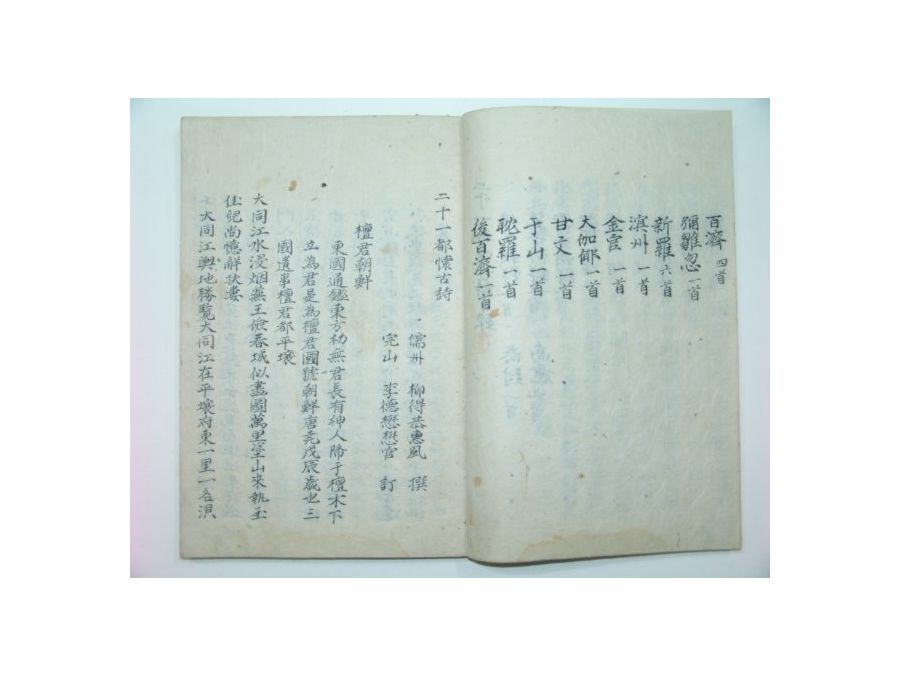 百濟 四首
彌雛忽 一首
新羅 六首
溟州 一首
金官 一首
大伽倻 一首
甘文 一首
于山 一首
耽羅 一首
後百濟 一首
二十一都懷古詩
儒州 柳得恭惠風 撰
完山 李德懋懋官 訂
檀君朝鮮
東國通鑑東方初無君長有神人降于檀木下
立為君是為檀君國號朝鮮唐堯戊辰歲也三
國遺事檀君都平壤
大同江水浸烟蕪王儉春城似畫圖萬里塗山來執玉
佳兒尚憶解扶婁
大同江輿地勝覽大同江在平壤府東一里一名浿